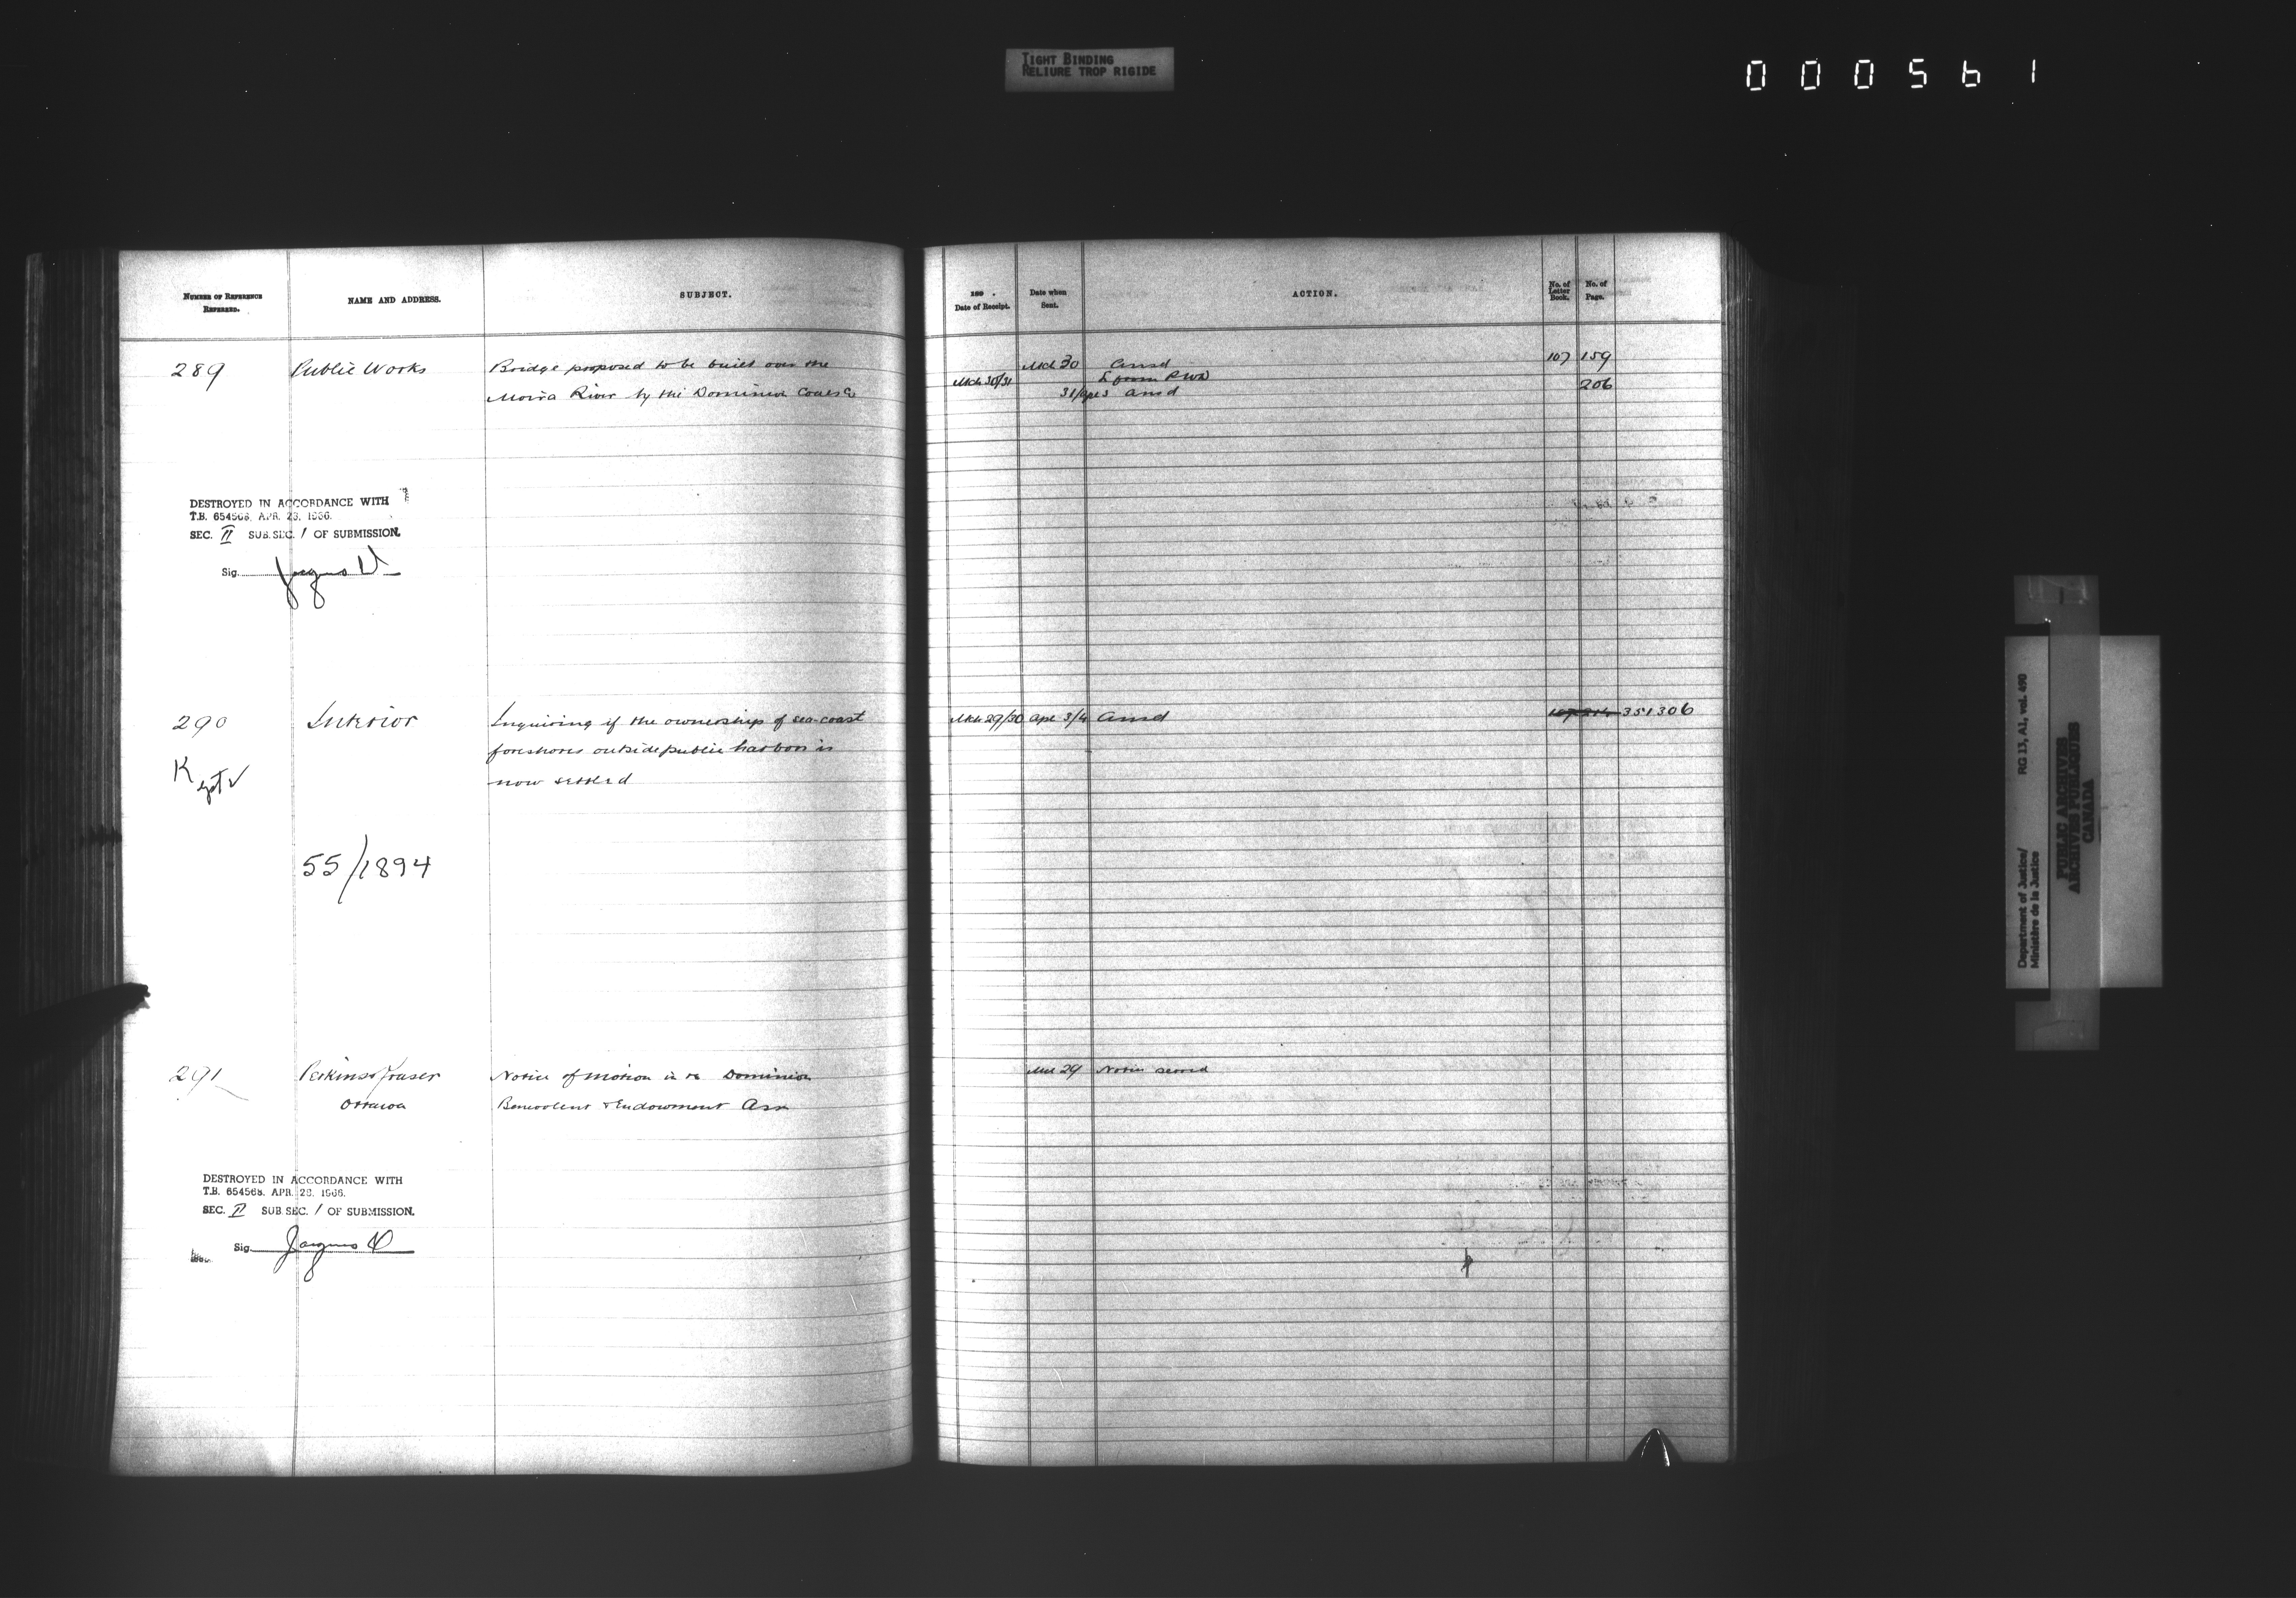 TIGHT BINDING
RELIURE TROP RIGIDE
000561
NUMBER OF REFERENCE REFERRED.
NAME AND ADDRESS.
SUBJECT.
189 .
Date of Receipt.
Date when Sent.
ACTION.
No. of Letter Book.
No. of Page.
289 Public Works Bridge proposed to be built over the Mch 30 Ansd 107 159
Mch 30/31
Moira River by the Dominion 31/Apl 3 Ansd 206
DESTROYED IN ACCORDANCE WITH
T.B. 654568, APR. 28, 1966.
SEC. II SUB.SEC. 1 OF SUBMISSION.
Sig. Jacques
290 Interior Inquiring if the ownership of sea-coast Mch 29/30 Apl 3/4 Ansd 351306
foreshores outside public harbors is
now settled
Kept ✓
55/1894
291 Perkins & Fraser Notice of Motion in re Dominion Mch 29 Notice served
Ottawa Benevolent & Endowment Assn
DESTROYED IN ACCORDANCE WITH
T.B. 654568, APR. 28, 1966.
SEC. II SUB.SEC. 1 OF SUBMISSION.
Sig. Jacques
Department of Justice/ RG 13, A1, vol. 490
Ministère de la Justice
PUBLIC ARCHIVES
ARCHIVES PUBLIQUES
CANADA